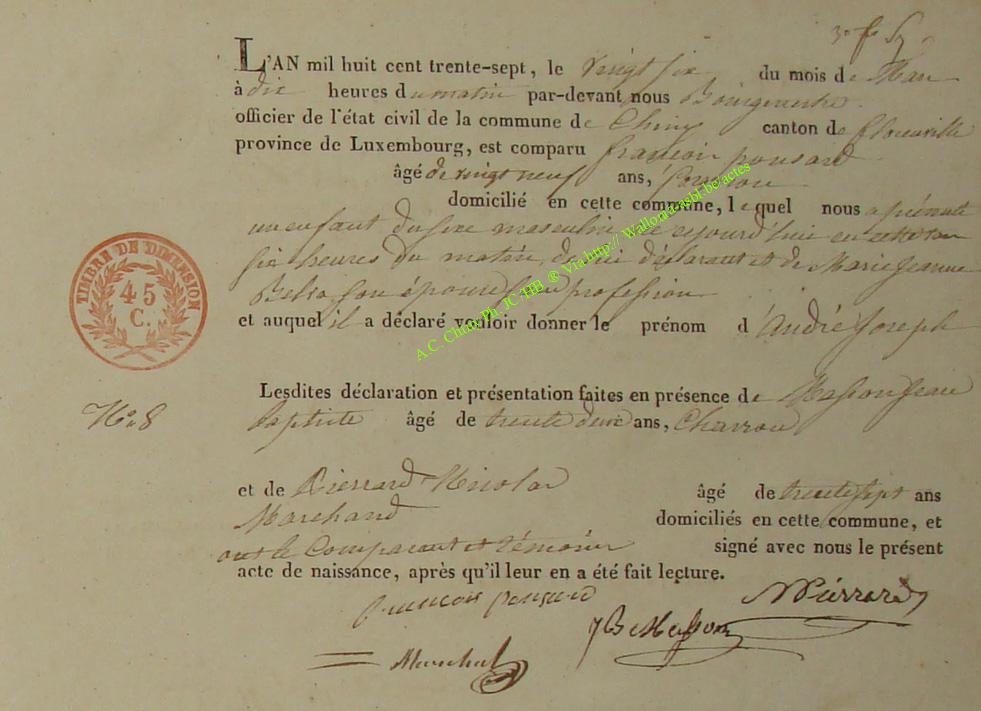 L'AN mil huit cent trente-sept, le vingt six du mois de Mars
à dix heures du matin par-devant nous Bourgmestre
officier de l'état civil de la commune de Chiny canton de florenville
province de Luxembourg, est comparu françois ponsard
âgé de vingt neuf ans,
domicilié en cette commune, lequel nous a présenté
un enfant du sexe masculin né cejourd'hui en cette
six heures du matin, de lui déclarant et de Marie Jeanne
son épouse sans profession
et auquel il a déclaré vouloir donner le prénom d'André Joseph
Lesdites déclaration et présentation faites en présence de Masson Jean
baptiste âgé de trente deux ans, Charron
N° 8
et de Pierrard Nicolas âgé de trente sept ans
Marchand domiciliés en cette commune, et
ont le Comparant et témoins signé avec nous le présent
acte de naissance, après qu'il leur en a été fait lecture.
françois ponsard NPierrard
JBMasson
Marechal
TIMBRE DE DIMENSION
45
C.
A.C. Chiny Ph. JC. HB ® Via http:// Wallonia.asbl.be/actes